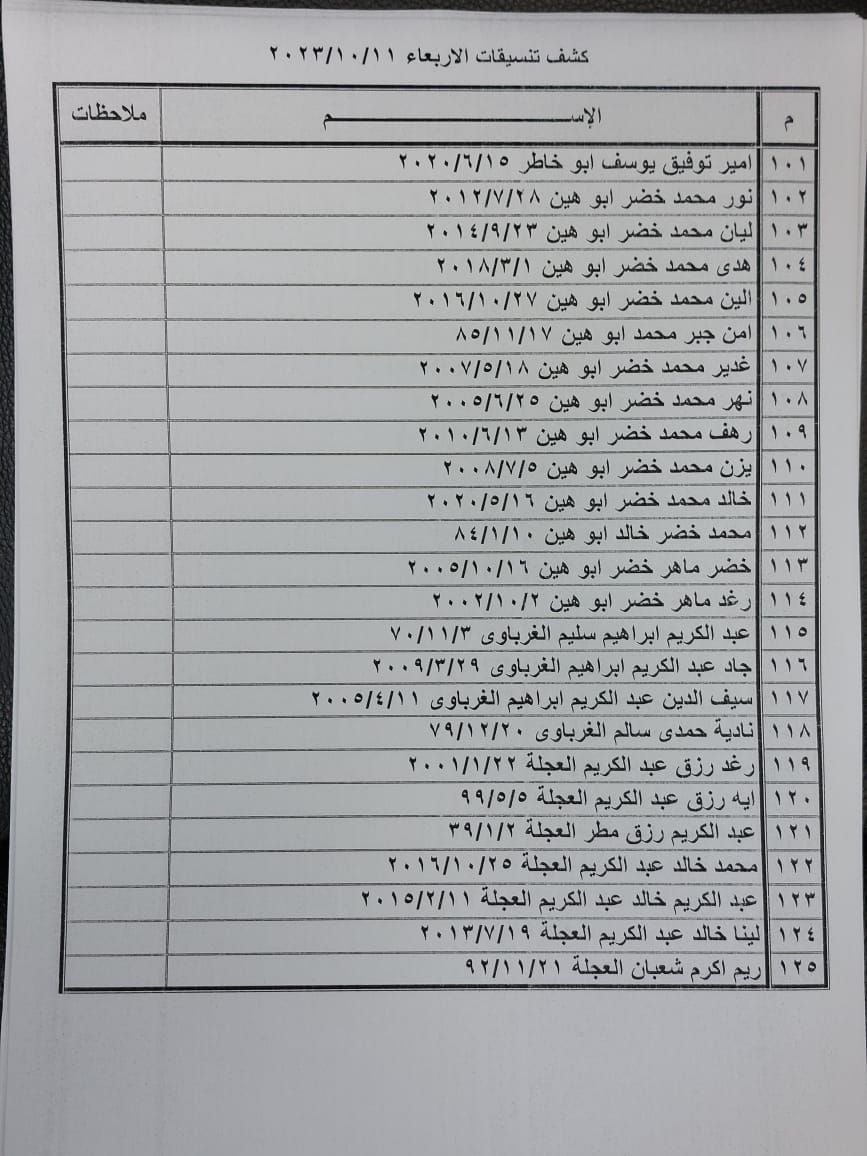 كشف تنسيقات الاربعاء ٢٠٢٣/١٠/١١
م الإســـم ملاحظات
١٠١ امير توفيق يوسف ابو خاطر ٢٠٢٠/٦/١٥
١٠٢ نور محمد خضر ابو هين ٢٠١٢/٧/٢٨
١٠٣ ليان محمد خضر ابو هين ٢٠١٤/٩/٢٣
١٠٤ هدى محمد خضر ابو هين ٢٠١٨/٣/١
١٠٥ الين محمد خضر ابو هين ٢٠١٦/١٠/٢٧
١٠٦ امن جبر محمد ابو هين ٨٥/١١/١٧
١٠٧ غدير محمد خضر ابو هين ٢٠٠٧/٥/١٨
١٠٨ نهر محمد خضر ابو هين ٢٠٠٥/٦/٢٥
١٠٩ رهف محمد خضر ابو هين ٢٠١٠/٦/١٣
١١٠ يزن محمد خضر ابو هين ٢٠٠٨/٧/٥
١١١ خالد محمد خضر ابو هين ٢٠٢٠/٥/١٦
١١٢ محمد خضر خالد ابو هين ٨٤/١/١٠
١١٣ خضر ماهر خضر ابو هين ٢٠٠٥/١٠/١٦
١١٤ رغد ماهر خضر ابو هين ٢٠٠٢/١٠/٢
١١٥ عبد الكريم ابراهيم سليم الغرباوى ٧٠/١١/٣
١١٦ جاد عبد الكريم ابراهيم الغرباوى ٢٠٠٩/٣/٢٩
١١٧ سيف الدين عبد الكريم ابراهيم الغرباوى ٢٠٠٥/٤/١١
١١٨ نادية حمدى سالم الغرباوى ٧٩/١٢/٢٠
١١٩ رغد رزق عبد الكريم العجلة ٢٠٠١/١/٢٢
١٢٠ ايه رزق عبد الكريم العجلة ٩٩/٥/٥
١٢١ عبد الكريم رزق مطر العجلة ٣٩/١/٢
١٢٢ محمد خالد عبد الكريم العجلة ٢٠١٦/١٠/٢٥
١٢٣ عبد الكريم خالد عبد الكريم العجلة ٢٠١٥/٢/١١
١٢٤ لينا خالد عبد الكريم العجلة ٢٠١٣/٧/١٩
١٢٥ ريم اكرم شعبان العجلة ٩٢/١١/٢١